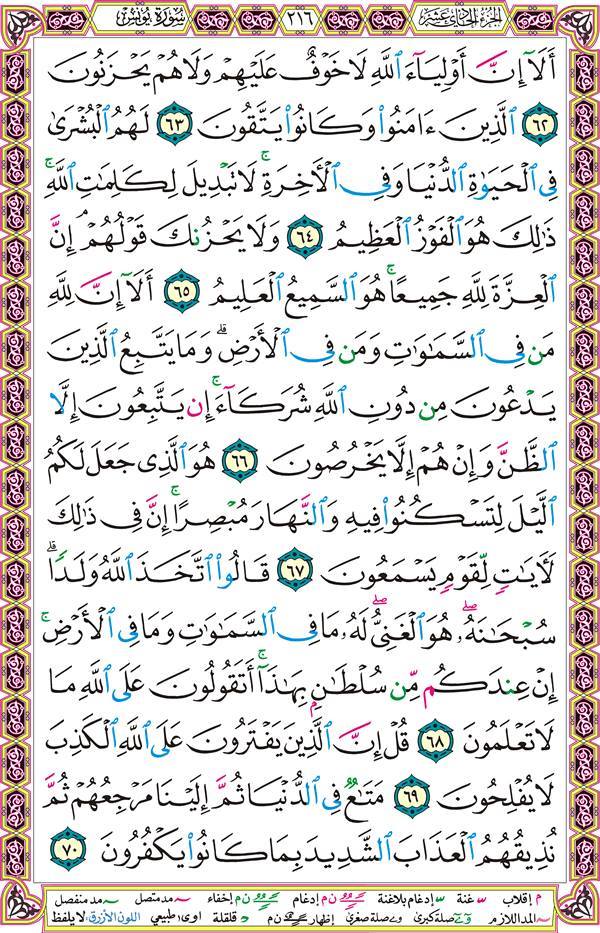 الجزء الحادي عشر ٢١٦ سورة يونس
أَلَآ إِنَّ أَوْلِيَآءَ ٱللَّهِ لَا خَوْفٌ عَلَيْهِمْ وَلَا هُمْ يَحْزَنُونَ
٦٢ ٱلَّذِينَ ءَامَنُوا۟ وَكَانُوا۟ يَتَّقُونَ ٦٣ لَهُمُ ٱلْبُشْرَىٰ
فِى ٱلْحَيَوٰةِ ٱلدُّنْيَا وَفِى ٱلْـَٔاخِرَةِ ۚ لَا تَبْدِيلَ لِكَلِمَٰتِ ٱللَّهِ ۚ
ذَٰلِكَ هُوَ ٱلْفَوْزُ ٱلْعَظِيمُ ٦٤ وَلَا يَحْزُنكَ قَوْلُهُمْ ۘ إِنَّ
ٱلْعِزَّةَ لِلَّهِ جَمِيعًا ۚ هُوَ ٱلسَّمِيعُ ٱلْعَلِيمُ ٦٥ أَلَآ إِنَّ لِلَّهِ
مَن فِى ٱلسَّمَٰوَٰتِ وَمَن فِى ٱلْأَرْضِ ۗ وَمَا يَتَّبِعُ ٱلَّذِينَ
يَدْعُونَ مِن دُونِ ٱللَّهِ شُرَكَآءَ ۚ إِن يَتَّبِعُونَ إِلَّا
ٱلظَّنَّ وَإِنْ هُمْ إِلَّا يَخْرُصُونَ ٦٦ هُوَ ٱلَّذِى جَعَلَ لَكُمُ
ٱلَّيْلَ لِتَسْكُنُوا۟ فِيهِ وَٱلنَّهَارَ مُبْصِرًا ۚ إِنَّ فِى ذَٰلِكَ
لَـَٔايَٰتٍ لِّقَوْمٍ يَسْمَعُونَ ٦٧ قَالُوا۟ ٱتَّخَذَ ٱللَّهُ وَلَدًا ۗ
سُبْحَٰنَهُۥ ۖ هُوَ ٱلْغَنِىُّ ۖ لَهُۥ مَا فِى ٱلسَّمَٰوَٰتِ وَمَا فِى ٱلْأَرْضِ ۚ
إِنْ عِندَكُم مِّن سُلْطَٰنٍۭ بِهَٰذَآ ۚ أَتَقُولُونَ عَلَى ٱللَّهِ مَا
لَا تَعْلَمُونَ ٦٨ قُلْ إِنَّ ٱلَّذِينَ يَفْتَرُونَ عَلَى ٱللَّهِ ٱلْكَذِبَ
لَا يُفْلِحُونَ ٦٩ مَتَٰعٌ فِى ٱلدُّنْيَا ثُمَّ إِلَيْنَا مَرْجِعُهُمْ ثُمَّ
نُذِيقُهُمُ ٱلْعَذَابَ ٱلشَّدِيدَ بِمَا كَانُوا۟ يَكْفُرُونَ ٧٠
م إقلاب غنة إدغام بلاغنة ن م إدغام ن م إخفاء مد متصل مد منفصل
المد اللازم صلة كبرى صلة صغرى إظهار ن م قلقلة اوى طبيعي اللون الأزرق لا يلفظ